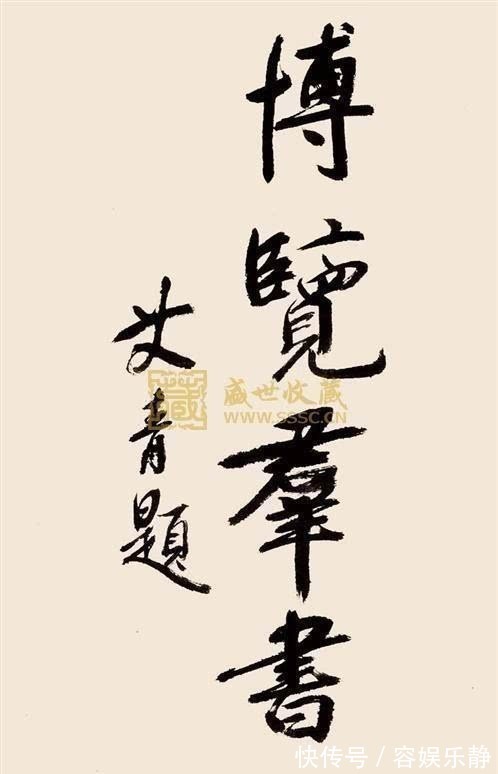 博覽羣書
艾青題
藏
盛世收藏
WWW.SSSC.CN
快传号／容娱乐静